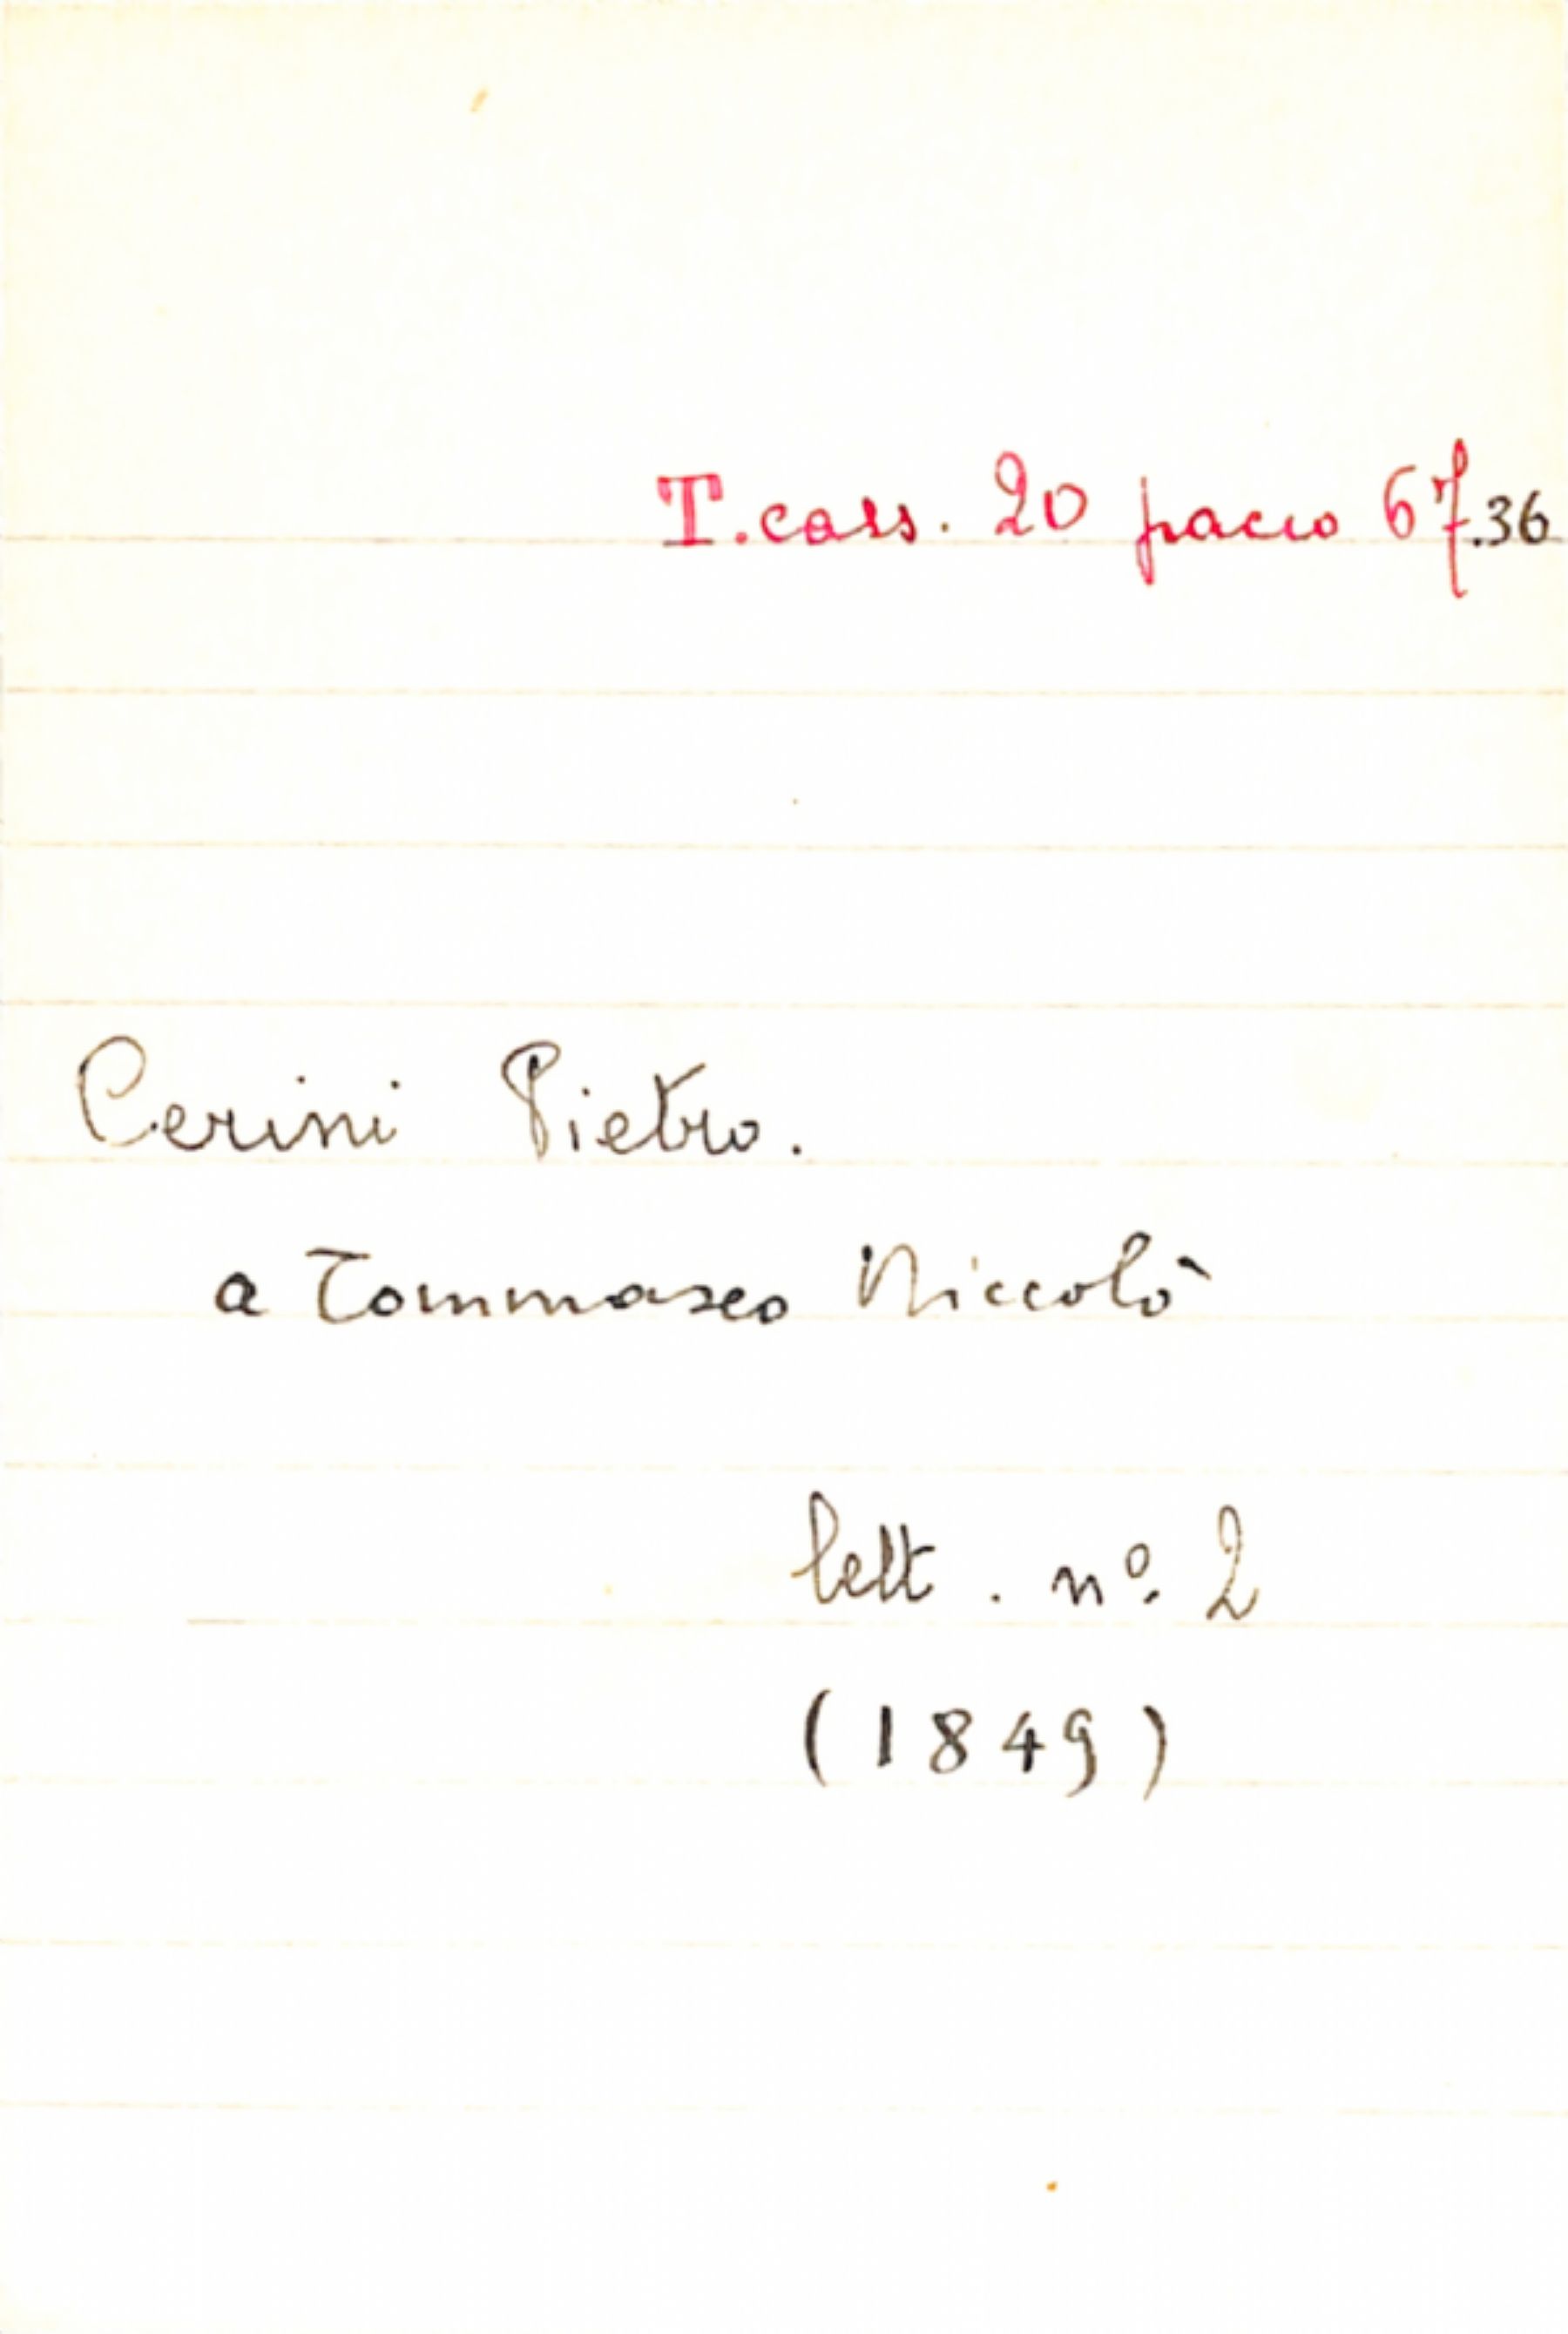 T. cass. 20 pacco 67.36
Cerini Pietro.
a Tommaseo Niccolò
lett. nº 2
(1849)